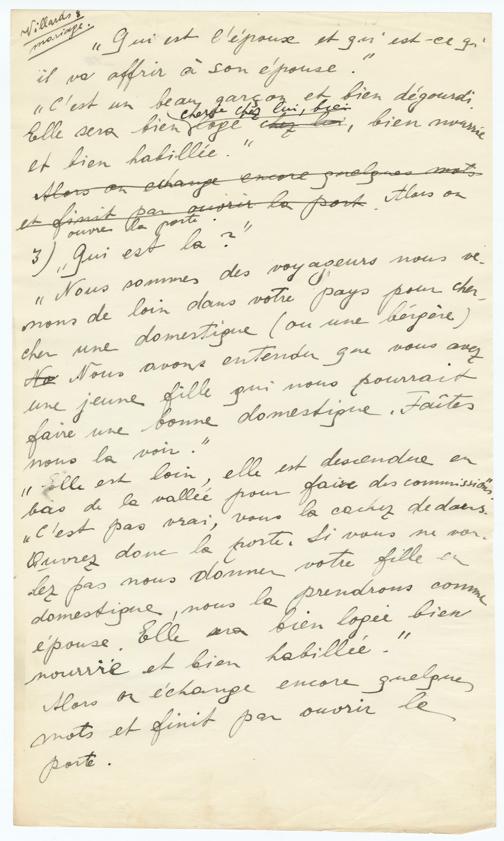 Villards &
mariage.
„Qui est l'épouse et qui est-ce qi
il va affrir à son épouse."
"C'est un beau garçon et bien dégourdi.
Elle sera bien logé chez lui, bien nourrie
cherse chez lui, bien
et bien habillée."
Alors on echange encore quelques mots
et finit par ouvrir la port. Alors on
ouvre la porte.
3) „Qui est la?"
"Nous sommes des voyageurs nous ve-
nons de loin dans votre pays pour cher-
cher une domestique (ou une bérgère)
No Nous avons entendu que vous avez
une jeune fille qui nous pourrait
faire une bonne domestique. Faîtes
nous la voir."
"Elle est loin, elle est descendue en
bas de la vallée pour faire des commissions".
"C'est pas vrai, vous la cachez dedans.
Ouvrez donc la porte. Si vous ne vou-
lez pas nous donner votre fille en
domestique, nous la prendrons comme
épouse. Elle sera bien logée bien
nourrie et bien habillée."
Alors on échange encore quelques
mots et finit par ouvrir la
porte.